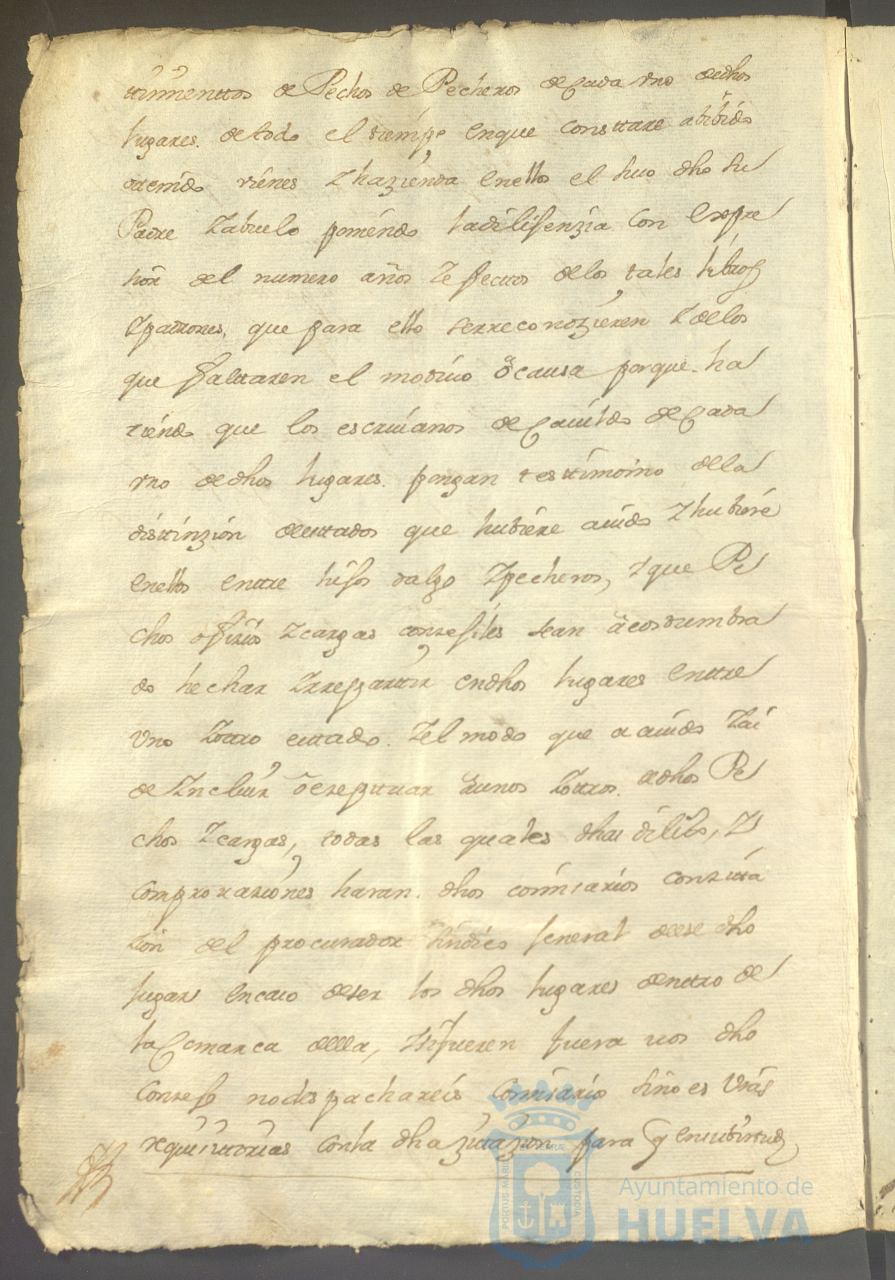 timientos de Pechos de Pecheros de Cada vno de dhos
lugares. de todo el tiempo enque Consttare abibido
otenido vienes Y hazienda enellos el suo dho su
Padre Y abuelo poniendo la dilijenzia Con Expre
sion del numero años Y efectos delos tales libros
Y padrones, que para ello se rreconozieren Y delos
que faltaren el motiuo ô causa porque. ha
ziendo que los escriuanos de Cauildo de Cada
vno de dhos lugares. pongan testtimonio dela
disttinzion de esttados que hubiere auido Y hubiere
enellos enttre hijos dalgo Y pecheros, Y que Pe
chos ofizios Y cargas conzejiles sean acostumbra
do hechar Y rrepartir en dhos lugares enttre
Vno Y otro esttado. Y el modo que a auido Y ai
de Yncluir ô eseptuar Y unos Y ottros. a dhos Pe
chos Y cargas, todas las quales dhas dilixs, Y
Comprouaziones haran. dhos comisarios con zitta
zion del procurador sindico Jeneral de ese dho
lugar en caso de ser los dhos lugares denttro de
la Comarca della, Y si fueren fuera uos dho
Conzejo no despachareis Comisario sino es Vras
requisittorias con la dha zitazion para q en uirtud
Ayuntamiento de
HUELVA